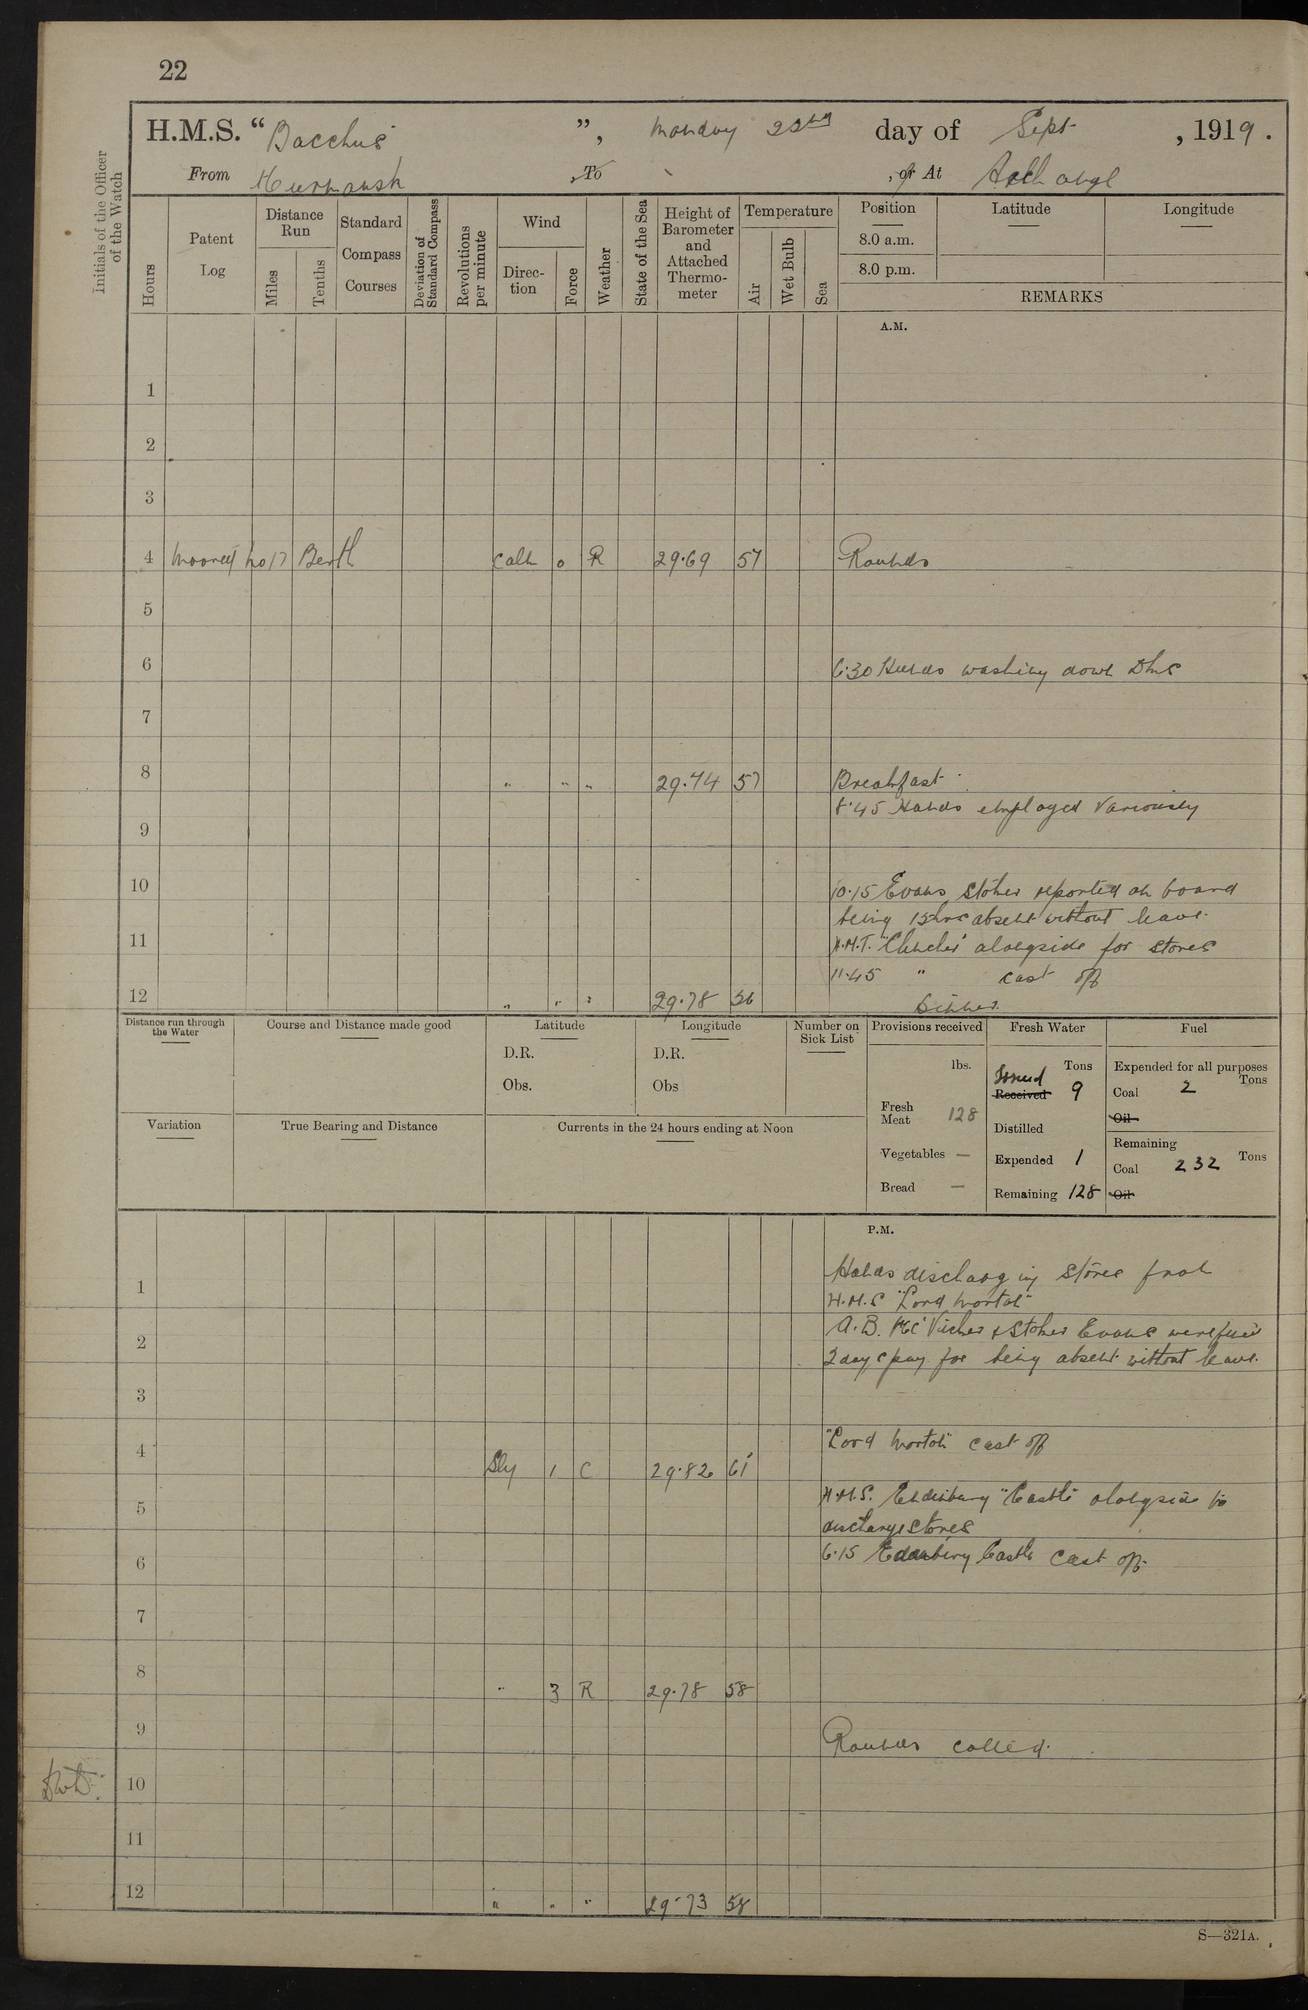 22
H.M.S. "Bacchus", Monday 22nd day of Sept, 1919.
From Murmansk, To , or At Archangl
Initials of the Officer of the Watch
Hours
Patent Log
Distance Run
Miles
Tenths
Standard Compass Courses
Deviation of Standard Compass
Revolutions per minute
Wind
Direction
Force
Weather
State of the Sea
Height of Barometer and Attached Thermometer
Temperature
Air
Wet Bulb
Sea
Position
8.0 a.m.
8.0 p.m.
Latitude
Longitude
REMARKS
A.M.
1
2
3
4 Moored No 17 Berth Calm 0 R 29.69 57 Rounds
5
6 6.30 Hands washing down Dks
7
8 " " " 29.74 57 Breakfast
8.45 Hands employed Variously
9
10 10.15 Evans Stoker reported on board
being 15hrs absent without leave.
11 H.M.T. alongside for stores
11.45 " cast off
12 " " " 29.78 56 Dinner.
Distance run through the Water
Course and Distance made good
Latitude
D.R.
Obs.
Longitude
D.R.
Obs
Number on Sick List
Provisions received
lbs.
Fresh Meat 128
Vegetables —
Bread —
Fresh Water
Tons
Issued
Received 9
Distilled
Expended 1
Remaining 128
Fuel
Expended for all purposes
Tons
Coal 2
Oil
Remaining
Coal 232 Tons
Oil
Variation
True Bearing and Distance
Currents in the 24 hours ending at Noon
P.M.
Hands discharging stores from
1 H.M.S "Lord Morton"
A.B. & Stoker Evans were
2 2 days pay for being absent without leave.
3
4 "Lord Morton" cast off
Sly 1 C 29.82 61
5 H.M.S. Edinburg "Castle" alongside to
discharge stores
6 6.15 Edenburg Castle cast off.
7
8 " 3 R 29.78 58
9 Rounds called.
10
11
12 " " " 29.73 58
S—321A.